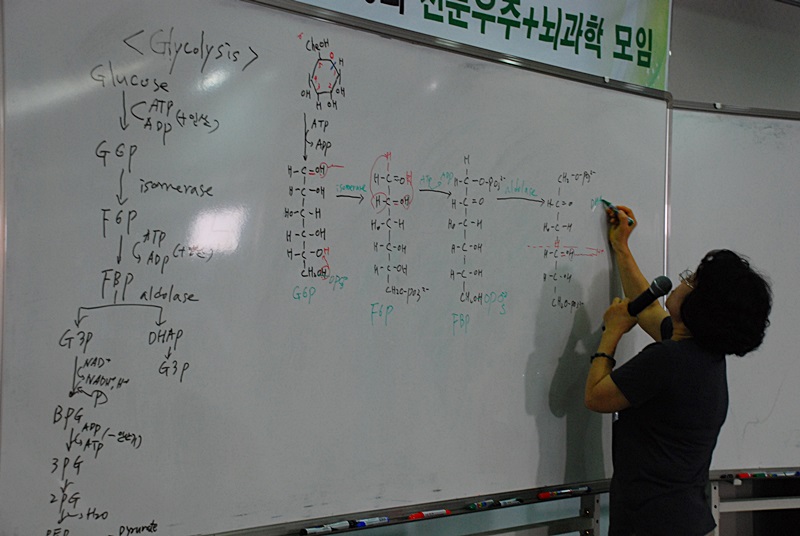 천문우주+뇌과학 모임
<Glycolysis>
Glucose
ATP
ADP (+인산)
G6P
isomerase
F6P
ATP
ADP (+인산)
FBP
aldolase
G3P
DHAP
G3P
NAD⁺
NADH, H⁺
P
BPG
ADP
ATP
3PG
2PG
H₂O
PEP
pyruvate
CH₂OH
OH
OH
OH
ATP
ADP
H-C=OH
H-C-OH
HO-C-H
H-C-OH
H-C-OH
CH₂OH
G6P
isomerase
H
H-C=OH
H-C-OH
Ho-C-H
H-C-OH
H-C-OH
CH₂O-PO₃²⁻
F6P
ATP
ADP
H
H-C-O-PO₃²⁻
C=O
Ho-C-H
H-C-OH
H-C-OH
CH₂OH
FBP
aldolase
CH₂-O-PO₃²⁻
C=O
Ho-C-H
H-C=OH
H-C-OH
CH₂O-PO₃²⁻